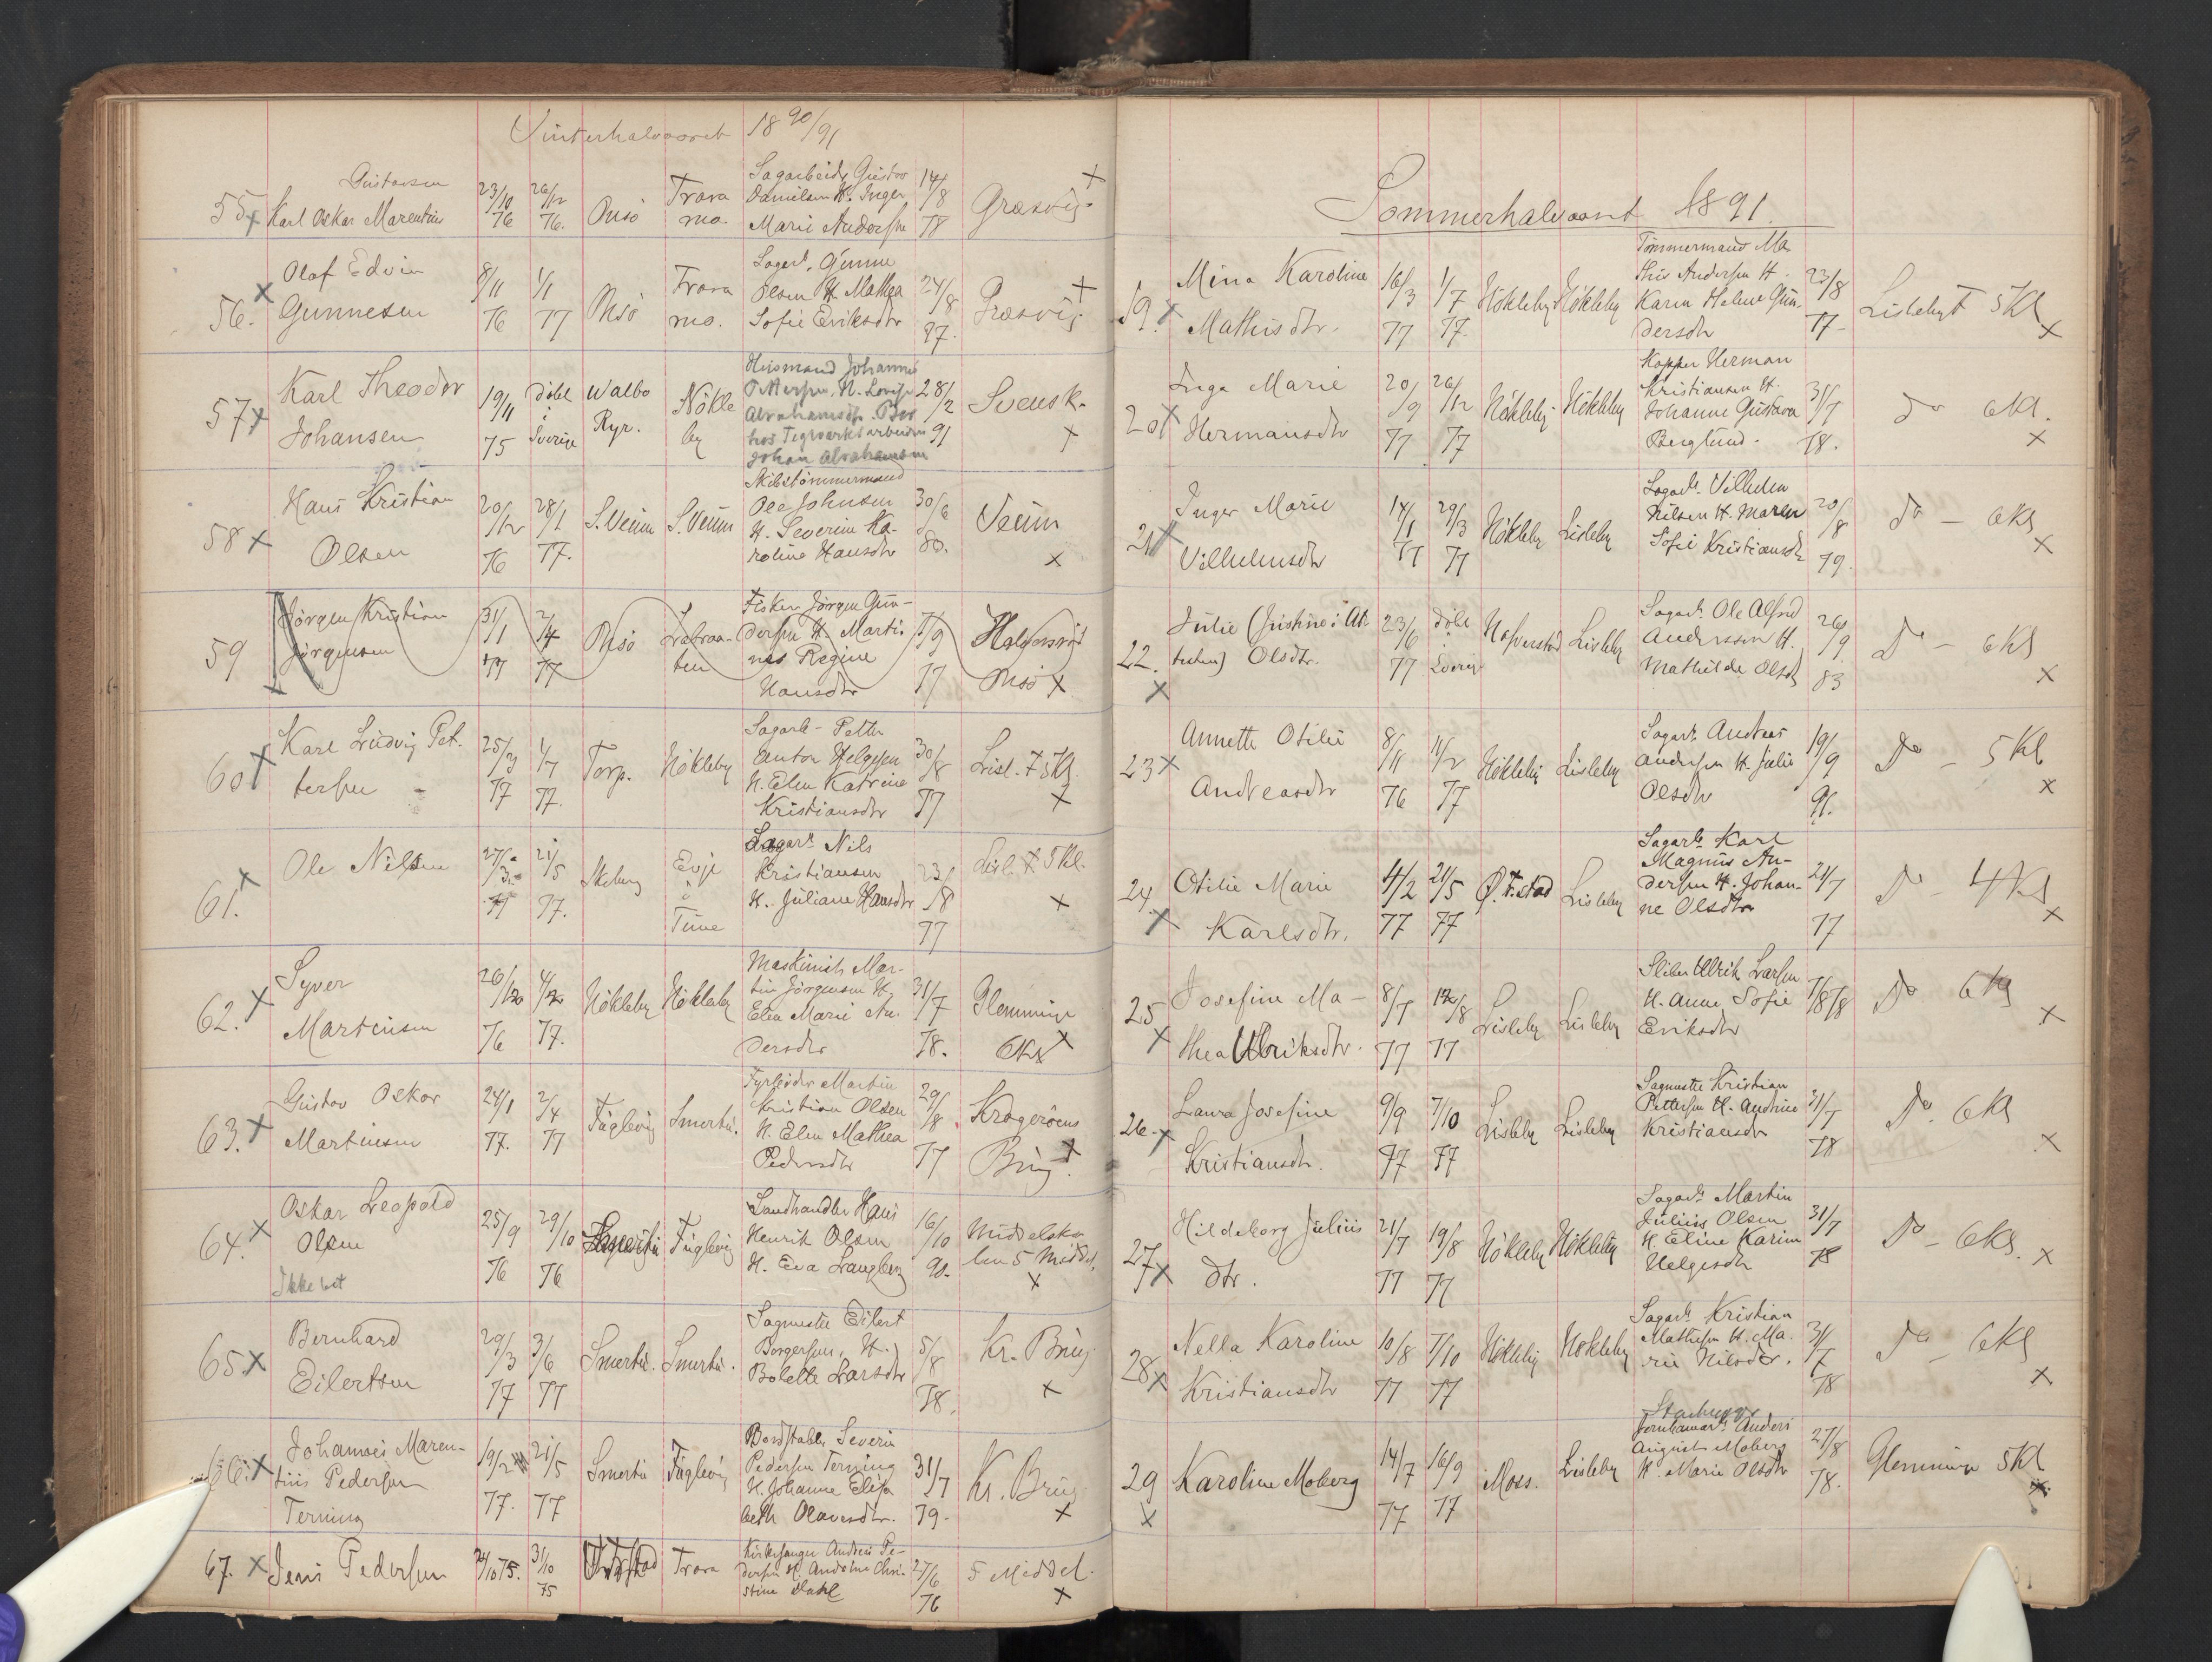 Vinterhalvaaret 18 90/91
55 x Gustavsen
Karl Oskar Marentius
23/10 76
26/12 76.
Onsö
Trara
mo.
Sagarbeider Gustav
Danielsen H. Inger
Marie Andersen
14/8 78
Græsvig x
56. x Olaf Edvin
Gunnesen
8/11 76
1/1 77
Onsö
Trara
mo.
Sagarb. Gunne
Olsen H. Mathea
Sofie Eriksdtr
24/8 87.
Græsvig x
57 x Karl Theodor
Johansen
19/11 75
Döbt
i
Sverige
Walbo
Ryr.
Nökle
by
Husmand Johannes
Pettersen, H. Lovise
Abrahamsdtr. Bor
hos Tegværksarbeider
Johan Abrahamsen
28/2 91
Svensk.
x
58 x Hans Kristian
Olsen
20/12 76
28/1 77.
S. Veum
S. Veum
Skibstömmermand
Ole Johnsen
H. Severine Ka-
roline Hansdtr
30/6 80.
Veum
x
59 Jörgen Kristian
Jörgensen
31/1 77
2/4 77
Onsö
Fisker Jörgen Gun-
dersen H. Marti-
nes Regine
Hansdtr
7/9 77
Onsö x
60 x Karl Ludvig Pet-
tersen
25/3 77
1/7 77.
Torp.
Nökleby
Sagarb- Petter
Anton Helgesen
H. Elen Katrine
Kristiansdtr
30/8 77
Lisl. F 5 Kl.
x
61. x Ole Nilsen
27/3 77
21/5 77.
Skeberg
Evje
i
Tune
Sagarb. Nils
Kristiansen
H. Juliane Hansdtr
23/8 77
Lisl. F 5 Kl.
x
62. x Syver
Martinsen
26/12 76
4/2 77.
Nökleby
Nökleby
Maskinist Mar-
tin Jörgensen H.
Elen Marie An-
dersdtr
31/7 78.
Glemminge
6 Kl x
63. x Gustav Oskar
Martinsen
24/1 77.
2/4 77
Fuglevig
Smertu.
Fyrböder Martin
Kristian Olsen
H. Elen Mathea
Pedersdtr
29/8 77
Krogeröens
Brug. x
64. x Oskar Leopold
Olsen
Ikke let
25/9 76
29/10 76
Fuglevig
Landhandler Hans
Henrik Olsen
H. Eva Langberg
16/10 90.
Middelsko
len 5 Middel.
x
65 x Bernhard
Eilertsen
29/3 77
3/6 77
Smertu.
Smertu.
Sagmester Eilert
Borgersen, H.
Bolette Larsdtr
5/8 78.
Kr. Brug
x
66. x Johannes Maren-
tius Pedersen
Terning
19/2 77.
21/5 77
Smertu
Fuglevig
Bordstabler Severin
Pedersen Terning
H. Johanne Elisa
beth Olavesdtr.
31/7 79.
Kr. Brug
x
67. x Jens Pedersen
24/10 75.
31/10 75
Trara
Kirkesanger Andreas Pe-
dersen H. Andrine Chri-
stine Dahl
27/6 76
5 Middel.
x
Sommerhalvaaret 1891.
19. x Mina Karoline
Mathisdtr.
16/3 77
1/7 77.
Nökleby
Nökleby
Tömmermand Ma
this Andersen H.
Karen Helene Gun-
dersdtr
23/8 77.
Lislebyt 5 Kl
x
20 x Inga Marie
Hermansdtr
20/9 77
26/12 77
Nökleby
Nökleby
Kopper Herman
Kristiansen H.
Johanne Gustava
Berglund.
31/7 78.
Do 6 Kl.
x
21 x Inger Marie
Vilhelmsdtr
14/1 77
29/3 77
Nökleby
Lisleby
Sagarb. Vilhelm
Nilsen H. Maren
Sofie Kristiansdtr
20/8 79.
Do - 6 Kl
x
22. x Julie (Justine i At-
testen) Olsdtr.
23/6 77
Döbt
i
Sverige
Hafverstad
Lisleby
Sagarb. Ole Alfred
Andersson H.
Mathilde Olsdtr
26/9 83
Do - 6 Kl
x
23 x Annette Otilie
Andreasdtr
8/11 76
11/2 77
Nökleby
Lisleby
Sagarb. Andreas
Andersen H. Julie
Olsdtr
19/9 91.
Do - 5 Kl
x
24. x Otilie Marie
Karlsdtr.
4/2 77
21/5 77
Ø. F.stad
Lisleby
Sagarb. Karl
Magnus An-
dersen H. Johan-
ne Olsdtr
21/7 77
Do - 4 Kl
x
25 x Josefine Ma-
thea Ulriksdtr.
8/7 77
12/8 77
Lisleby
Lisleby
Sliber Ulrik Larsen
H. Anne Sofie
Eriksdtr
7/8 78
Do 6 Kl
x
26. x Laura Josefine
Kristiansdtr.
9/9 77
7/10 77
Lisleby
Lisleby
Sagmester Kristian
Pettersen H. Andrine
Kristiansdtr
31/7 78
Do 6 Kl
x
27 x Hildeborg Julius
dtr.
21/7 77
19/8 77
Nökleby
Nökleby
Sagarb. Martin
Julius Olsen
H. Eline Karine
Helgesdtr
31/7 78
Do - 6 Kl.
x
28 x Nella Karoline
Kristiansdtr
10/8 77
7/10 77
Nökleby
Nökleby
Sagarb. Kristian
Mathisen H. Ma-
rie Nilsdtr.
31/7 78
Do - 6 Kl
x
29 x Karoline Moberg
14/7 77
16/9 77
Moss.
Lisleby
Anders
August Moberg
H. Marie Olsdtr
27/8 78.
Glemminge 5 Kl
x